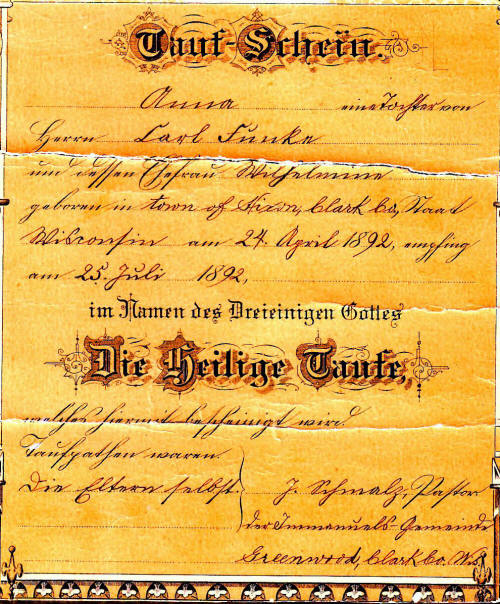 Tauf-Schein.
Anna eine Tochter von
Herrn Carl Funke
und dessen Ehefrau Wilhelmine
geboren in town of Hixon, Clark Co, Staat
Wisconsin am 24. April 1892, empfing
am 25. Juli 1892,
im Namen des Dreieinigen Gottes
Die Heilige Taufe,
welches hiermit bescheinigt wird.
Taufpathen waren.
Die Eltern selbst.
J. Schmalz, Pastor
der Immanuels-Gemeinde
Greenwood, Clark Co. Wis.